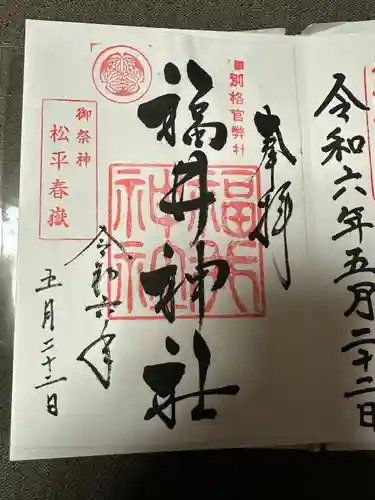 令和六年五月二十二日
奉拝
別格官弊社
福井神社
福井神社
御祭神
松平春嶽
令和六年
五月二十二日